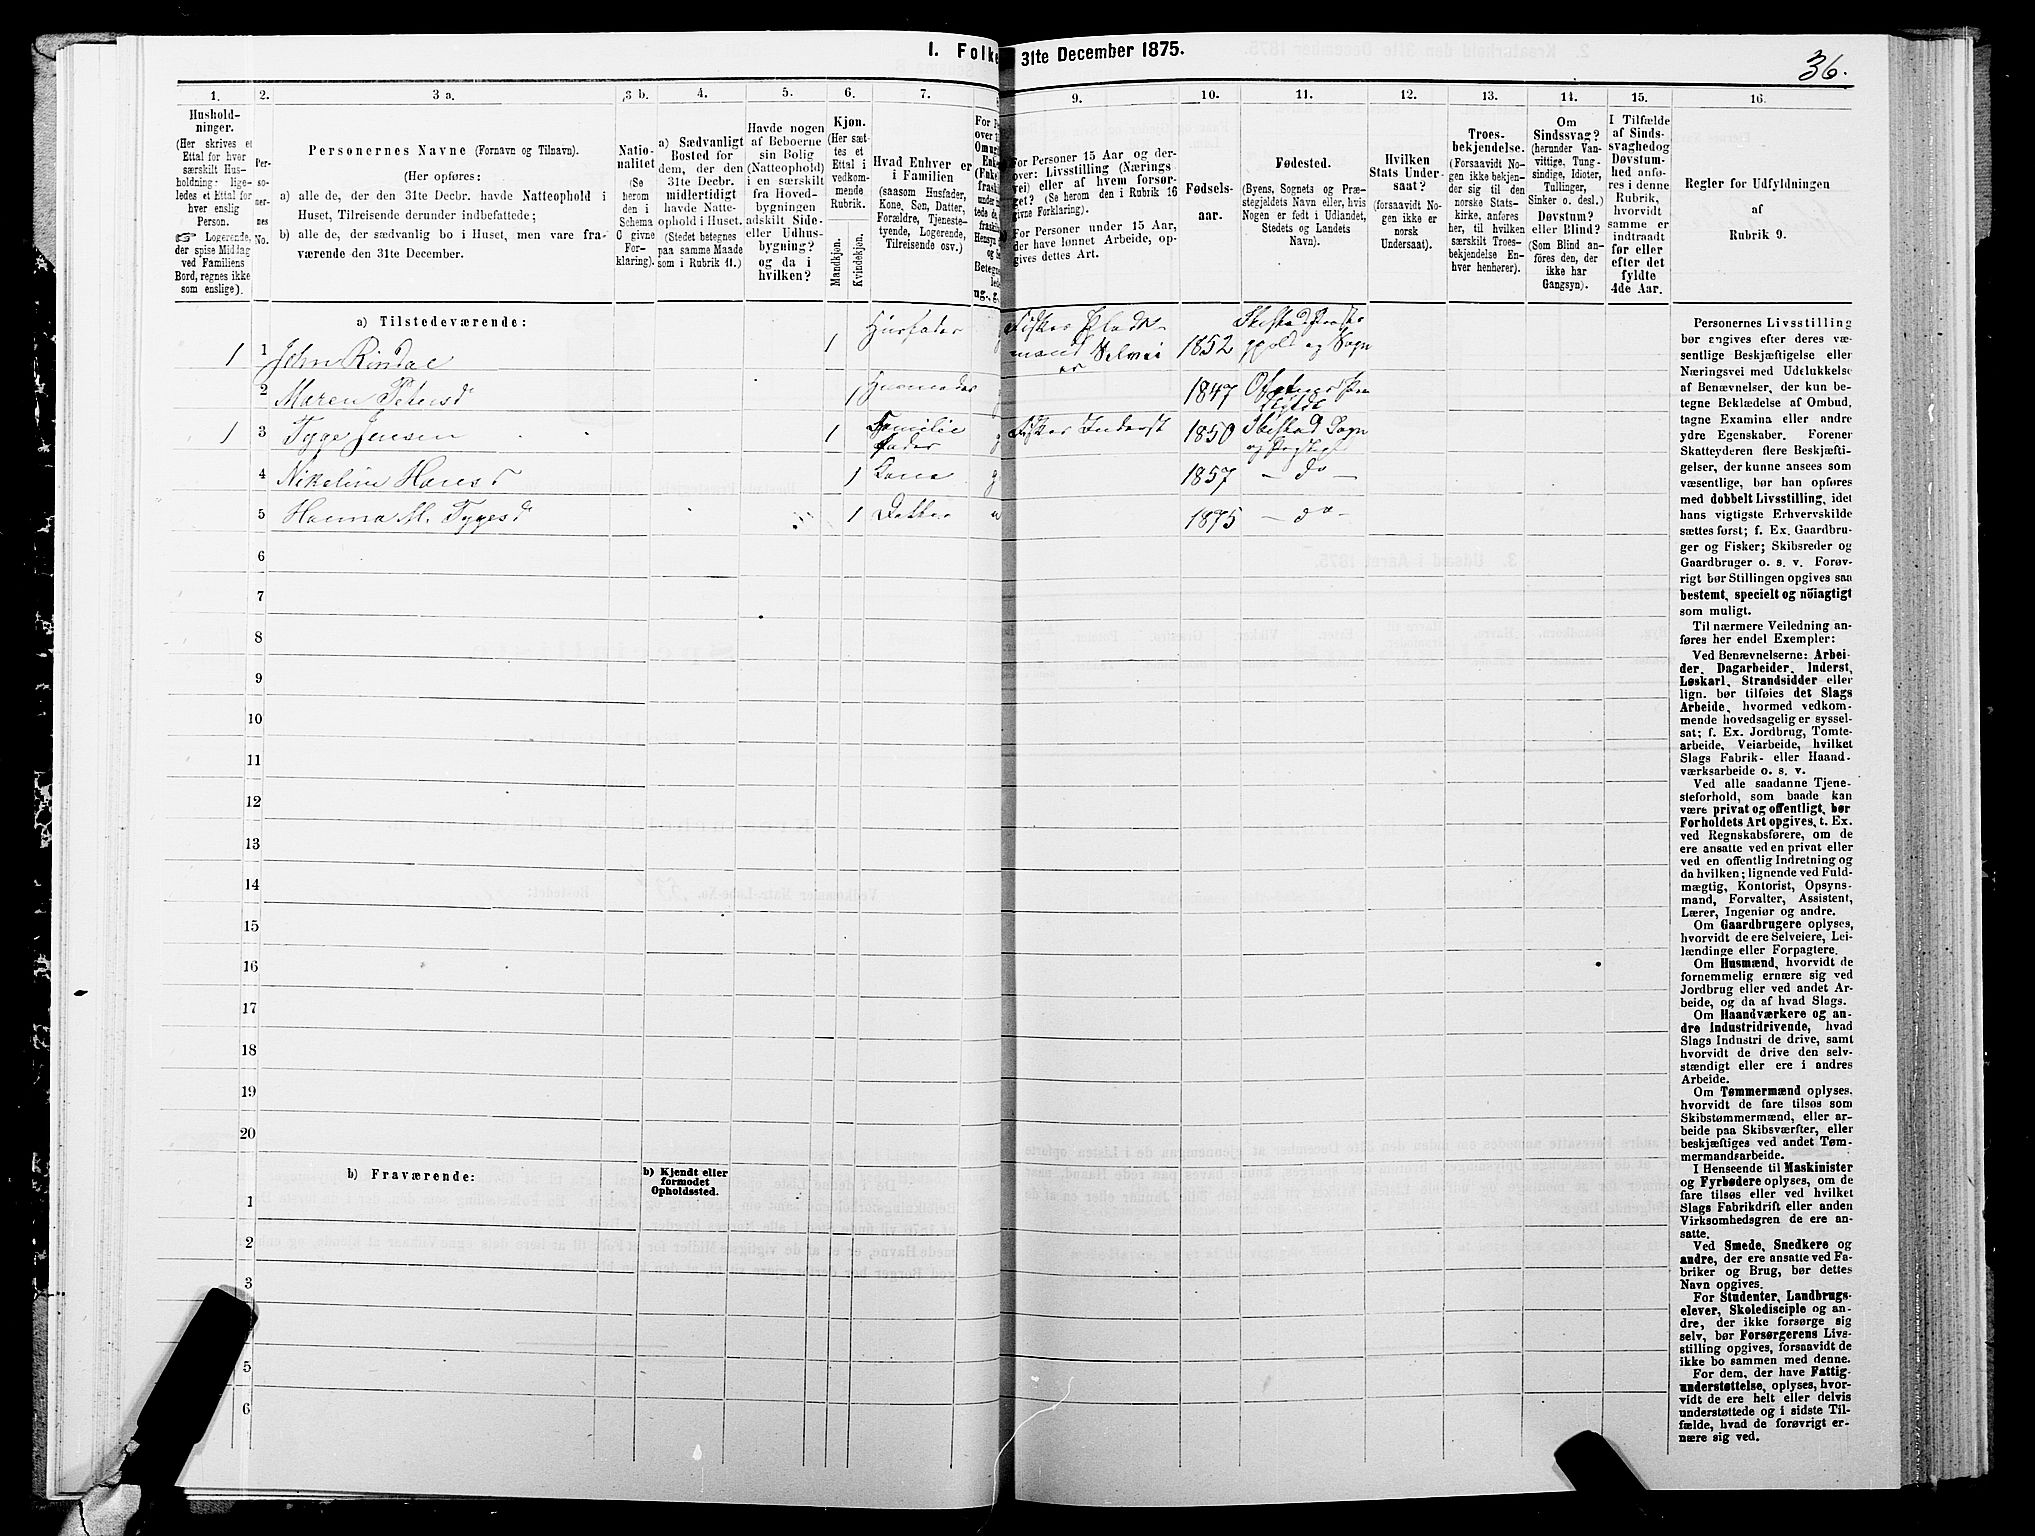 1. Folke
31te December 1875.
36.
1.
2.
3 a.
3 b.
4.
5.
6.
7.
9.
10.
11.
12.
13.
14.
15.
16.
Hushold-
ninger.
(Her skrives et
Ettal for hver
særskilt Hus-
holdning; lige-
ledes et Ettal for
hver enslig
Person.
☞ Logerende,
der spise Middag
ved Familiens
Bord, regnes ikke
som enslige).
Per-
so-
ner-
nes
No.
Personernes Navne (Fornavn og Tilnavn).
(Her opføres:
a) alle de, der den 31te Decbr. havde Natteophold i
Huset, Tilreisende derunder indbefattede;
b) alle de, der sædvanlig bo i Huset, men vare fra-
værende den 31te December.
Natio-
nalitet
(Se
herom
den i
Schema
C givne
For-
klaring).
a) Sædvanligt
Bosted for
dem, der den
31te Decbr.
midlertidigt
havde Natte-
ophold i Huset.
(Stedet betegnes
paa samme Maade
som i Rubrik 11.)
Havde nogen
af Beboerne
sin Bolig
(Natteophold)
i en særskilt
fra Hoved-
bygningen
adskilt Side-
eller Udhus-
bygning?
og da i
hvilken?
Kjøn.
(Her sæt-
tes et
Ettal i
vedkom-
mende
Rubrik.
Mandkjøn.
Kvindekjøn.
Hvad Enhver er
i Familien
(saasom Husfader,
Kone, Søn, Datter,
Forældre, Tjeneste-
tyende, Logerende,
Tilreisende osv.)
For Personer 15 Aar og der-
over: Livsstilling (Nærings-
vei) eller af hvem forsør-
get? (Se herom den i Rubrik 16
givne Forklaring).
For Personer under 15 Aar,
der have lønnet Arbeide, op-
gives dettes Art.
Fødsels-
aar.
Fødested.
(Byens, Sognets og Præ-
stegjeldets Navn, eller, hvis
Nogen er født i Udlandet,
Stedets og Landets
Navn).
Hvilken
Stats Under-
saat?
(forsaavidt No-
gen ikke er
norsk
Undersaat).
Troes-
bekjendelse.
(Forsaavidt No-
gen ikke bekjen-
der sig til den
norske Stats-
kirke, anføres
her, til hvilken
særskilt Troes-
bekjendelse En-
hver henhører).
Om
Sindssvag?
(herunder Van-
vittige, Tung-
sindige, Idioter,
Tullinger,
Sinker o. desl.)
Døvstum?
eller Blind?
(Som Blind an-
føres den, der
ikke har
Gangsyn).
I Tilfælde
af Sinds-
svaghed og
Døvstum-
hed anfø-
res i denne
Rubrik,
hvorvidt
samme er
indtraadt
før eller
efter det
fyldte
4de Aar.
Regler for Udfyldningen
af
Rubrik 9.
a) Tilstedeværende:
1 1 John Rindal 1 Husfader Fisker Pladsmand 1852
2 Maren Petersd 1 Husmoder 1847
1 3 Tyge Jensen 1 Familie fader g Fisker Inderst 1850 Ibestad Sogn
4 Nikoline Hansd 1 Kone g 1857 – do –
5 Hanna M. Tygesd 1 Datter u 1875 – do –
6
7
8
9
10
11
12
13
14
15
16
17
18
19
20
b) Fraværende:
b) Kjendt eller
formodet
Opholdssted.
1
2
3
5
6
Personernes Livsstilling
bør angives efter deres væ-
sentlige Beskjæftigelse eller
Næringsvei med Udelukkelse
af Benævnelser, der kun be-
tegne Beklædelse af Ombud,
tagne Examina eller andre
ydre Egenskaber. Forener
Skatteyderen flere Beskjæfti-
gelser, der kunne ansees som
væsentlige, bør han opføres
med dobbelt Livsstilling, idet
hans vigtigste Erhvervskilde
sættes først; f. Ex. Gaardbru-
ger og Fisker; Skibsreder og
Gaardbruger o. s. v. Forøv-
rigt bør Stillingen opgives saa
bestemt, specielt og nöiagtigt
som muligt.
Til nærmere Veiledning an-
føres her endel Exempler:
Ved Benævnelserne: Arbei-
der, Dagarbeider, Inderst,
Løskarl, Strandsidder eller
lign. bør tilføies det Slags
Arbeide, hvormed vedkom-
mende hovedsagelig er syssel-
sat; f. Ex. Jordbrug, Tomte-
arbeide, Veiarbeide, hvilket
Slags Fabrik- eller Haand-
værksarbeide o. s. v.
Ved alle saadanne Tjene-
steforhold, som baade kan
være privat og offentligt, bør
Forholdets Art opgives, t. Ex.
ved Regnskabsførere, om de
ere ansatte ved en privat eller
ved en offentlig Indretning og
da hvilken; lignende ved Fuld-
mægtig, Kontorist, Opsyns-
mand, Forvalter, Assistent,
Lærer, Ingeniør og andre.
Om Gaardbrugere oplyses,
hvorvidt de ere Selveiere, Lei-
lændinge eller Forpagtere.
Om Husmænd, hvorvidt de
fornemmelig ernære sig ved
Jordbrug eller ved andet Ar-
beide, og da af hvad Slags.
Om Haandværkere og an-
dre Industridrivende, hvad
Slags Industri de drive, samt
hvorvidt de drive den selv-
stændigt eller ere i andres
Arbeide.
Om Tømmermænd oplyses,
hvorvidt de fare tilsøs som
Skibstømmermænd, eller ar-
beide paa Skibsværfter, eller
beskjæftiges ved andet Tøm-
mermandsarbeide.
I Henseende til Maskinister
og Fyrbødere oplyses, om de
fare tilsøs eller ved hvilket
Slags Fabrikdrift eller anden
Virksomhedsgren de ere an-
satte.
Ved Smede, Snedkere og
andre, der ere ansatte ved Fa-
briker og Brug, bør dettes
Navn opgives.
For Studenter, Landbrugs-
elever, Skoledisciple og an-
dre, der ikke forsørge sig
selv, bør Forsørgerens Livs-
stilling opgives, forsaavidt de
ikke bo sammen med denne.
For dem, der have Fattig-
understøttelse, oplyses, hvor-
vidt de ere helt eller delvis
understøttede og i sidste Til-
fælde, hvad de forøvrigt er-
nære sig ved.